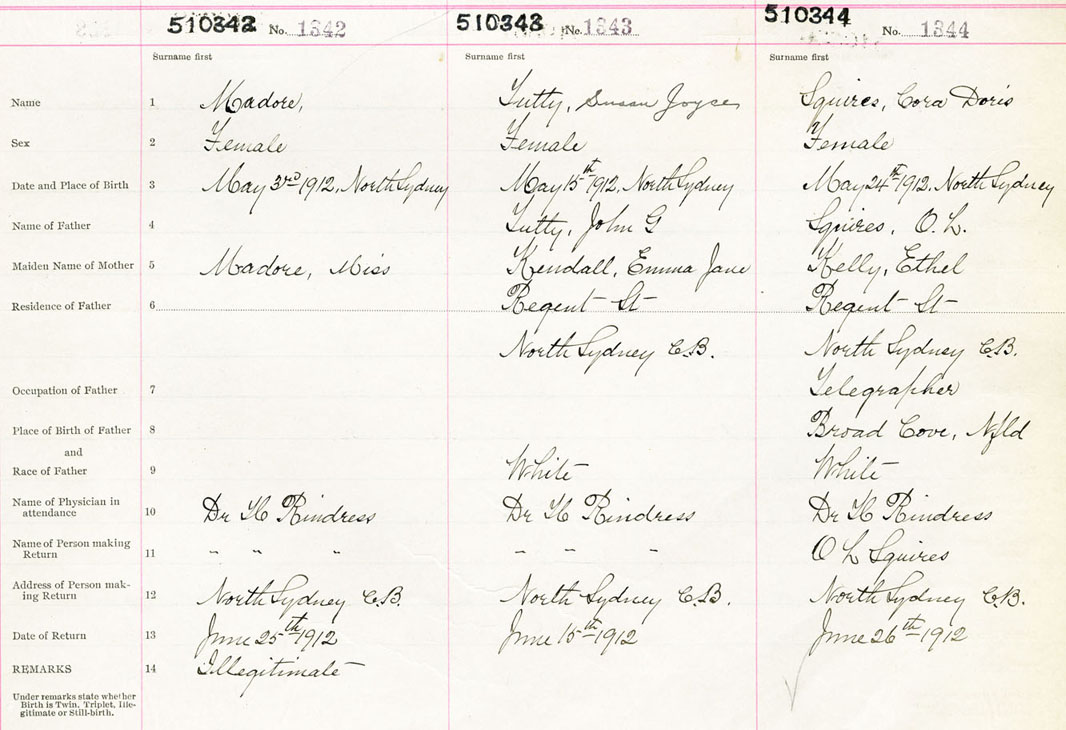 510342 No. 1342 510343 No. 1343 510344 No. 1344
Surname first Surname first Surname first
Name 1 Madore, Tutty, Susan Joyce Squires, Cora Doris
Sex 2 Female Female Female
Date and Place of Birth 3 May 3rd 1912, North Sydney May 15th 1912, North Sydney May 24th 1912, North Sydney
Name of Father 4 Tutty, John G Squires, O. L.
Maiden Name of Mother 5 Madore, Miss Kendall, Emma Jane Kelly, Ethel
Residence of Father 6 Regent St Regent St
North Sydney C.B. North Sydney C.B.
Occupation of Father 7 Telegrapher
Place of Birth of Father 8 Broad Cove, Nfld
and
Race of Father 9 White White
Name of Physician in
attendance 10 Dr H Rindress Dr H Rindress Dr H Rindress
Name of Person making
Return 11 " " " " " " O L Squires
Address of Person mak-
ing Return 12 North Sydney C.B. North Sydney C.B. North Sydney C.B.
Date of Return 13 June 25th 1912 June 15th 1912 June 26th 1912
REMARKS 14 Illegitimate
Under remarks state whether
Birth is Twin, Triplet, Ille-
gitimate or Still-birth.